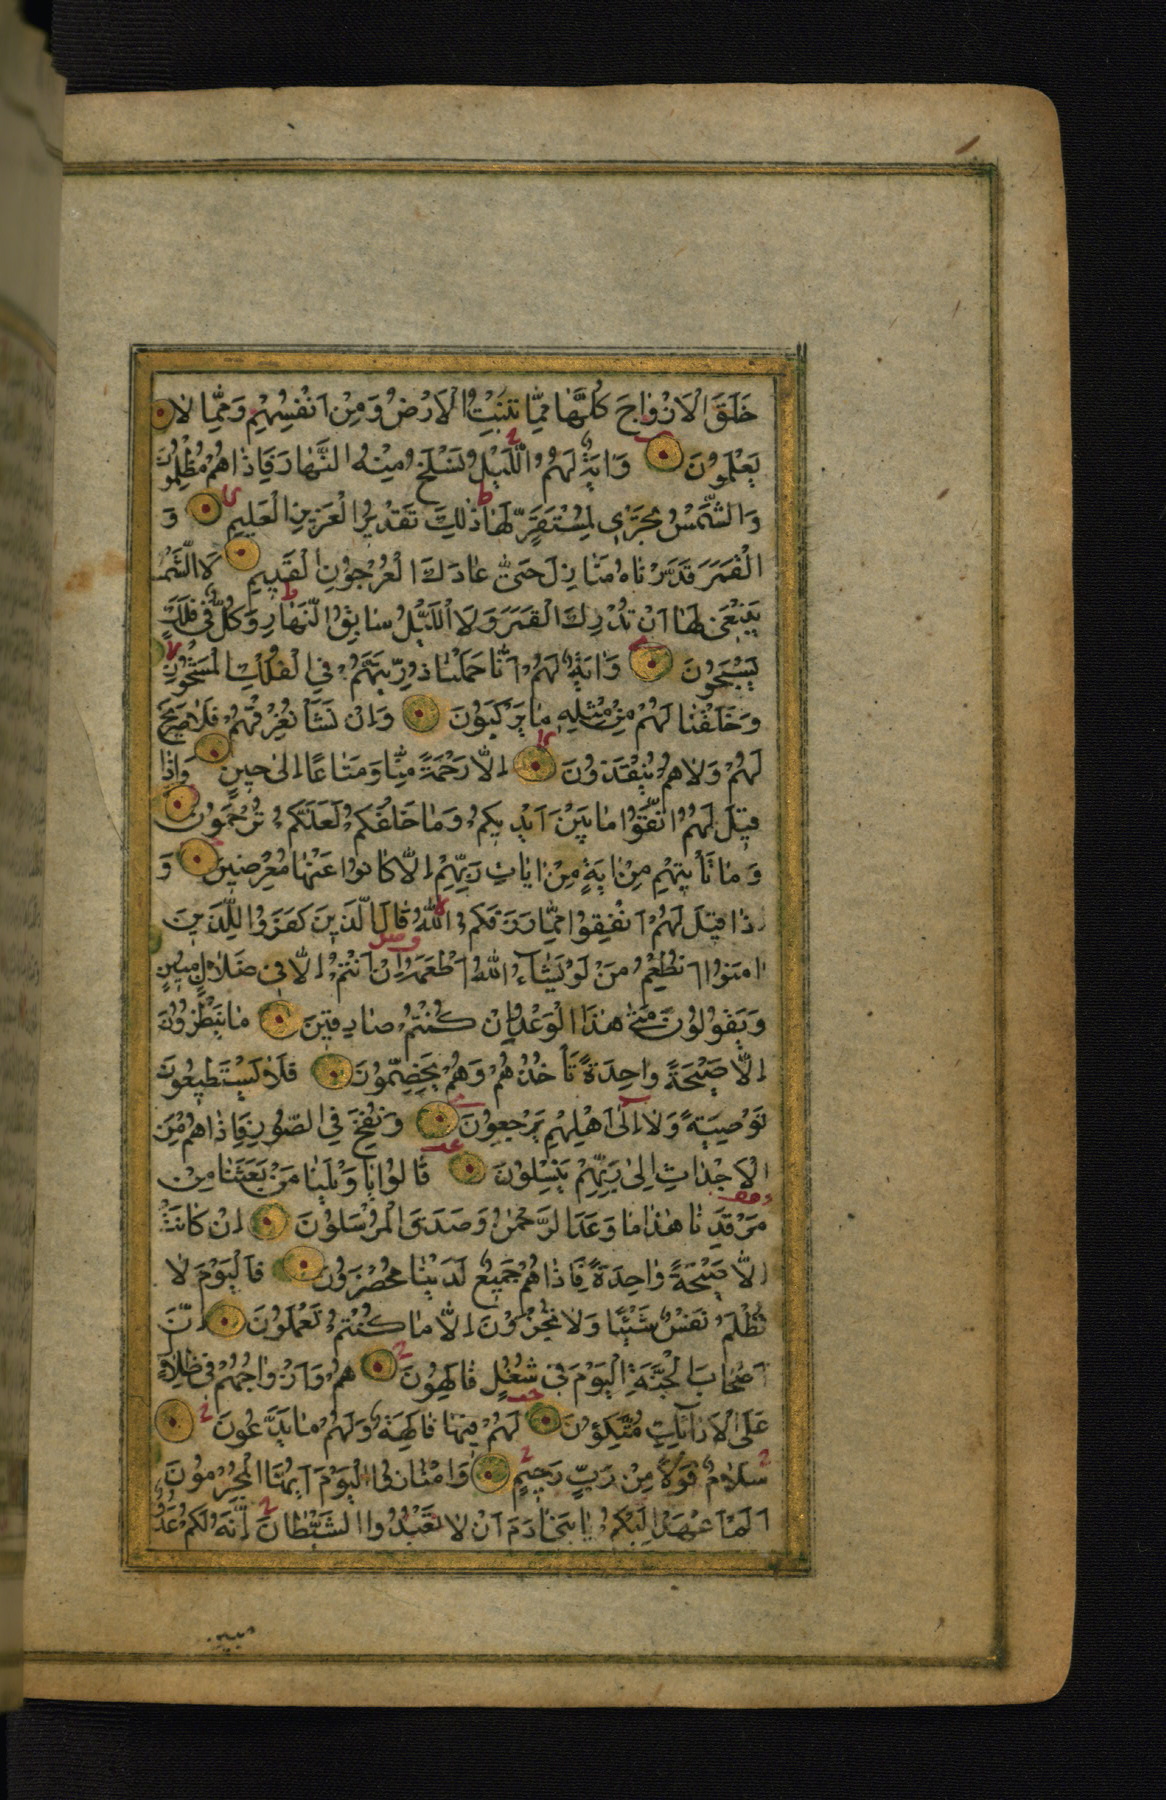 خَلَقَ الْاَزْوٰاجَ كُلَّهٰا مِمّٰا تُنْبِتُ الْاَرْضُ وَمِنْ اَنْفُسِهِمْ وَمِمّٰا لٰا
يَعْلَمُونَ وَاٰيَةٌ لَهُمُ اللَّيْلُ نَسْلَخُ مِنْهُ النَّهٰارَ فَاِذٰا هُمْ مُظْلِمُونَ
وَالشَّمْسُ تَجْرٖى لِمُسْتَقَرٍّ لَهٰا ذٰلِكَ تَقْدٖيرُ الْعَزٖيزِ الْعَلٖيمِ وَ
الْقَمَرَ قَدَّرْنٰاهُ مَنٰازِلَ حَتّٰى عٰادَ كَالْعُرْجُونِ الْقَدٖيمِ لَا الشَّمْسُ
يَنْبَغٖى لَهٰا اَنْ تُدْرِكَ الْقَمَرَ وَلَا اللَّيْلُ سٰابِقُ النَّهٰارِ وَكُلٌّ فٖى فَلَكٍ
يَسْبَحُونَ وَاٰيَةٌ لَهُمْ اَنّٰا حَمَلْنٰا ذُرِّيَّتَهُمْ فِى الْفُلْكِ الْمَشْحُونِ
وَخَلَقْنٰا لَهُمْ مِنْ مِثْلِهٖ مٰا يَرْكَبُونَ وَاِنْ نَشَأْ نُغْرِقْهُمْ فَلٰا صَرٖيخَ
لَهُمْ وَلٰا هُمْ يُنْقَذُونَ اِلّٰا رَحْمَةً مِنّٰا وَمَتٰاعًا اِلٰى حٖينٍ وَاِذٰا
قٖيلَ لَهُمُ اتَّقُوا مٰا بَيْنَ اَيْدٖيكُمْ وَمٰا خَلْفَكُمْ لَعَلَّكُمْ تُرْحَمُونَ
وَمٰا تَأْتٖيهِمْ مِنْ اٰيَةٍ مِنْ اٰيٰاتِ رَبِّهِمْ اِلّٰا كٰانُوا عَنْهٰا مُعْرِضٖينَ وَ
اِذٰا قٖيلَ لَهُمْ اَنْفِقُوا مِمّٰا رَزَقَكُمُ اللّٰهُ قٰالَ الَّذٖينَ كَفَرُوا لِلَّذٖينَ
اٰمَنُوا اَنُطْعِمُ مَنْ لَوْ يَشٰاءُ اللّٰهُ اَطْعَمَهُ اِنْ اَنْتُمْ اِلّٰا فٖى ضَلٰالٍ مُبٖينٍ
وَيَقُولُونَ مَتٰى هٰذَا الْوَعْدُ اِنْ كُنْتُمْ صٰادِقٖينَ مٰا يَنْظُرُونَ
اِلّٰا صَيْحَةً وٰاحِدَةً تَأْخُذُهُمْ وَهُمْ يَخِصِّمُونَ فَلٰا يَسْتَطٖيعُونَ
تَوْصِيَةً وَلٰا اِلٰى اَهْلِهِمْ يَرْجِعُونَ وَنُفِخَ فِى الصُّورِ فَاِذٰا هُمْ مِنَ
الْاَجْدٰاثِ اِلٰى رَبِّهِمْ يَنْسِلُونَ قٰالُوا يٰا وَيْلَنٰا مَنْ بَعَثَنٰا مِنْ
مَرْقَدِنٰا هٰذٰا مٰا وَعَدَ الرَّحْمٰنُ وَصَدَقَ الْمُرْسَلُونَ اِنْ كٰانَتْ
اِلّٰا صَيْحَةً وٰاحِدَةً فَاِذٰا هُمْ جَمٖيعٌ لَدَيْنٰا مُحْضَرُونَ فَالْيَوْمَ لٰا
تُظْلَمُ نَفْسٌ شَيْئًا وَلٰا تُجْزَوْنَ اِلّٰا مٰا كُنْتُمْ تَعْمَلُونَ اِنَّ
اَصْحٰابَ الْجَنَّةِ الْيَوْمَ فٖى شُغُلٍ فٰاكِهُونَ هُمْ وَاَزْوٰاجُهُمْ فٖى ظِلٰالٍ
عَلَى الْاَرٰائِكِ مُتَّكِؤُنَ لَهُمْ فٖيهٰا فٰاكِهَةٌ وَلَهُمْ مٰا يَدَّعُونَ
سَلٰامٌ قَوْلًا مِنْ رَبٍّ رَحٖيمٍ وَامْتٰازُوا الْيَوْمَ اَيُّهَا الْمُجْرِمُونَ
اَلَمْ اَعْهَدْ اِلَيْكُمْ يٰا بَنٖى اٰدَمَ اَنْ لٰا تَعْبُدُوا الشَّيْطٰانَ اِنَّهُ لَكُمْ عَدُوٌّ
مبين